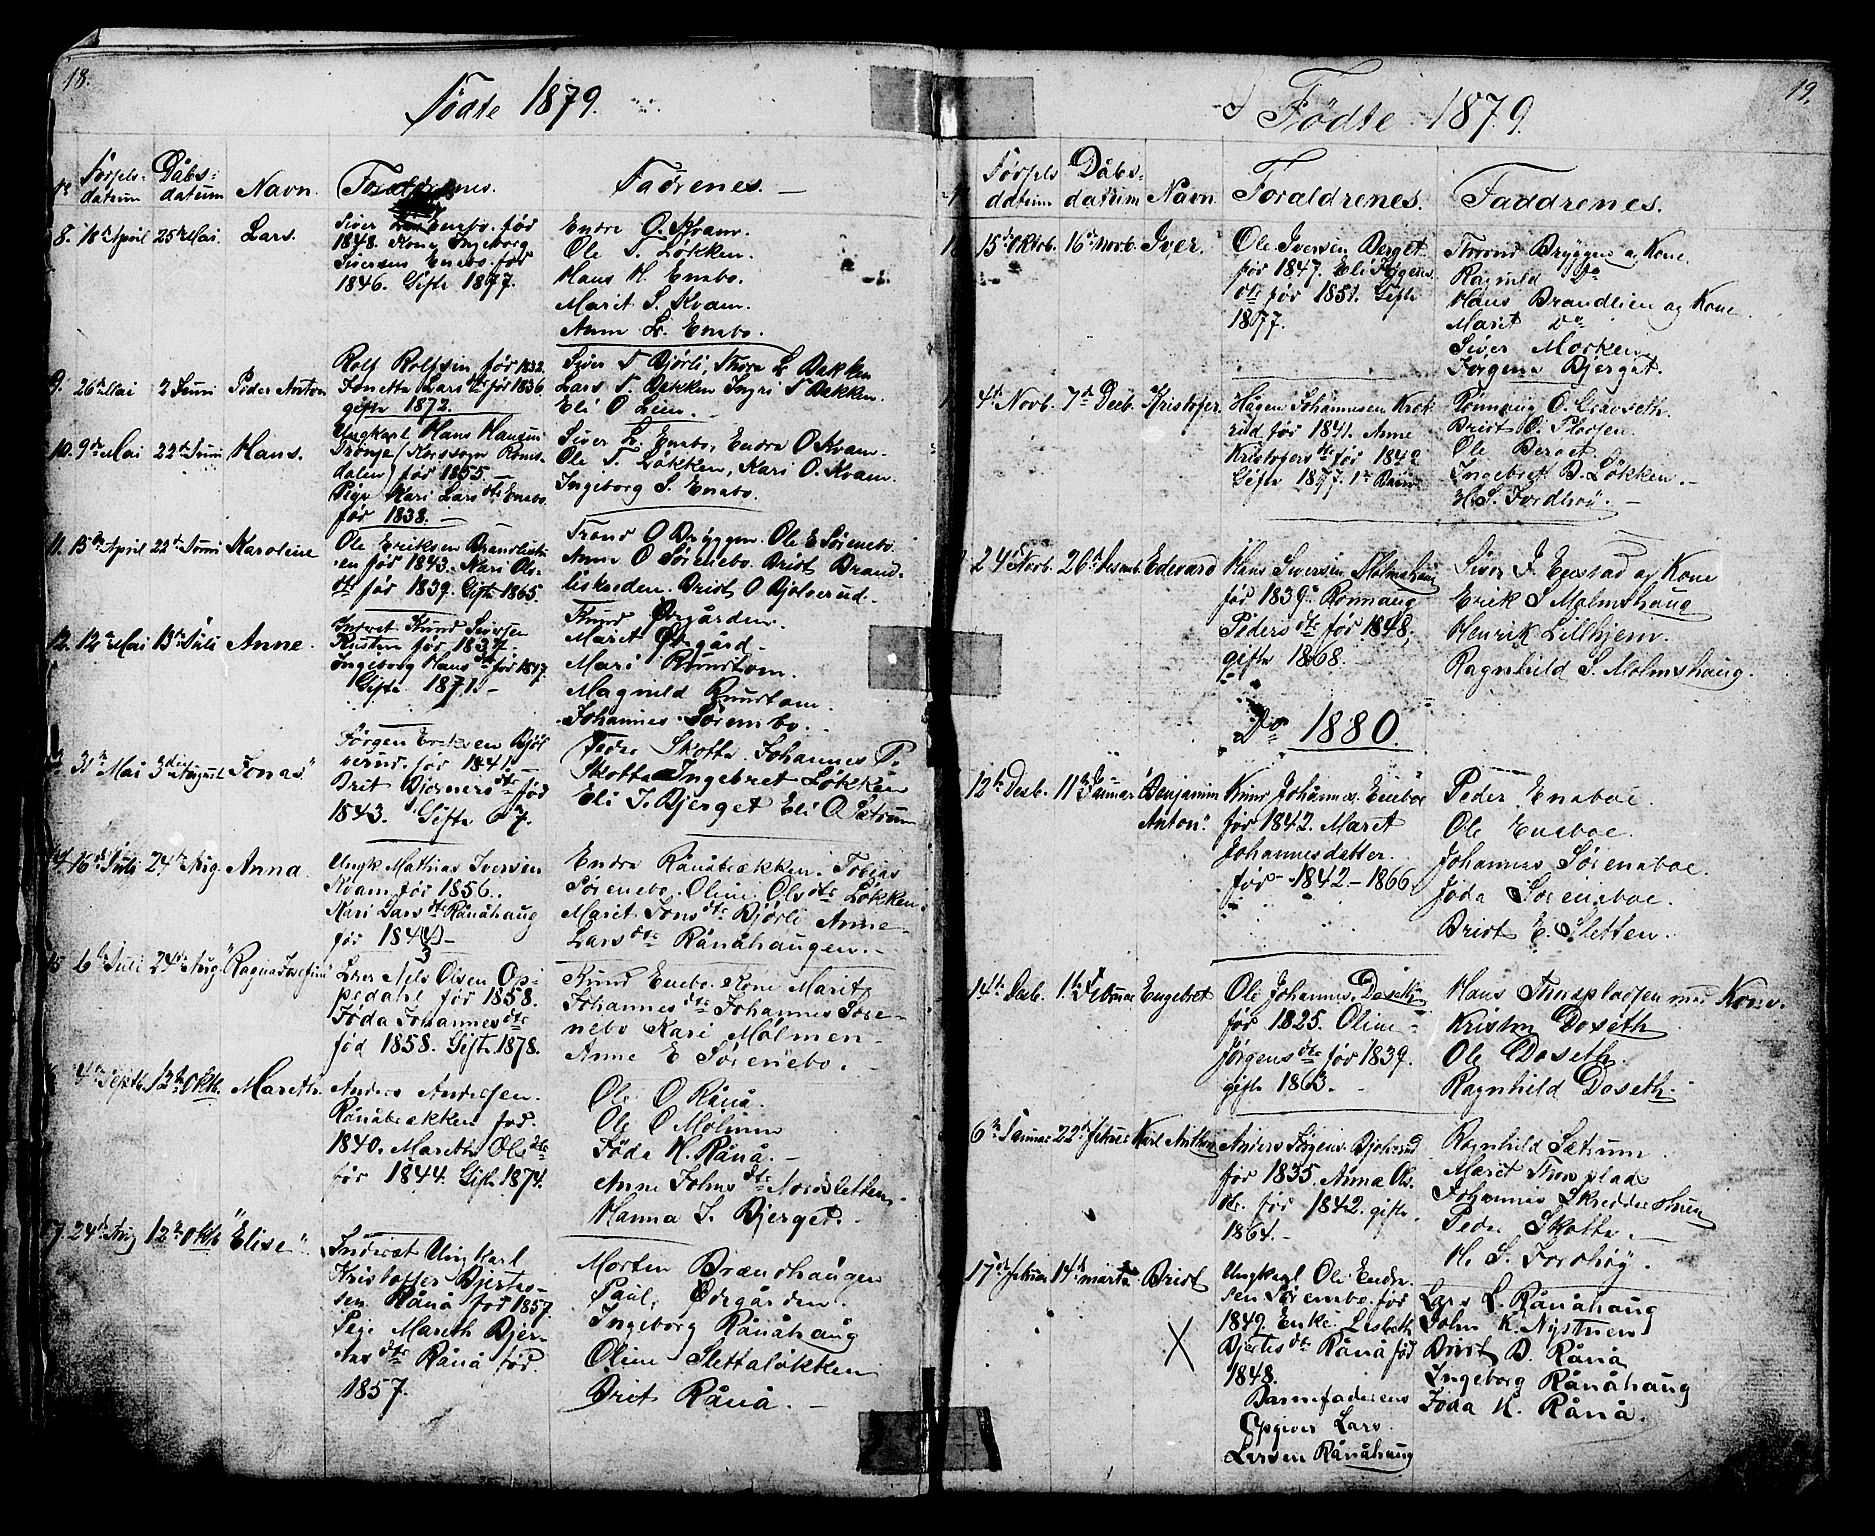 18.
Fødte 1879.
Førsels-
datum
Dåbs-
datum
Navn.
Foraldrenes.
Fadrenes. —
8. 18de April 25de Mai Lars.
Siver Enebo. før
1848. Kone Ingeborg
Siversen Enebo. før
1846. Gifte 1877.
Endre O. Kvam.
Ole T. Løkken.
Hans H. Enebo.
Marit S. Kvam.
Anne L. Enebo.
9. 26de Mai 2 Juni Peder Anton
Rolf Rolfsen før 1832.
Jonetta Lars dtr før 1836
gifte 1872.
Siver T Bjørli, Thore L Bakken
Lars T. Bakken Ingri T Bakken.
Eli O Lien. —
10. 9de Mai 22de Juni Hans.
Ungkarl Hans Hansen
(Korssogn Roms-
dalen) før 1855. —
Pige Kari Lars dtr Enebo
før 1838. —
Siver L. Enebo, Endre O Kvam.
Ole T. Løkken, Kari O. Kvam.
Ingeborg S. Enebo.
11. 15de April 22de Juni Karoline
Ole Eriksen Brandlist-
en før 1843. Kari Ols-
dtr før 1839. Gifte 1865.
Trond O Bryggen. Ole E Sørenebo.
Anne O Sørenebo. Bridt Brand-
liskreden. Bridt O Bjølverud.
12. 12de Mai 13de Juli Anne.
Knud Siversen
før 1837.
Ingeborg Hans dtr før 1847.
Gifte 1871. —
Knud Øvgården.
Maret Øvgård.
Mari
Magnild
Johannes Sørembo.
31te Mai 3die August Jonas"
Jørgen Eriksen Bjøl
verud. før 1841.
Brit Bjørners dtr før
1843. Gifte 67.
Peder Skotte Johannes P.
Skotte Ingebret Løkken
Eli J. Bjerget Eli O Sætrum
14. 16de Juli 24de Aug. Anna.
Ungk. Mathias Iversen
Kvam før 1856.
Kari Lars dtr Rånåhaug
før 1843 —
Endre Rånåbækken. Tobias
Sørenebo. Oline Ols dtr Løkken.
Maret Jons dtr Bjørli Anne-
Lars dtr Rånåhaugen. —
15 6te Juli 24de Aug" Ragna Josefine
Nels Olsen Op-
pedahl før 1858.
Jøda Johannes dtr
fød 1858. Gifte 1878.
Knud Enebo. Kone Marit
Johannes dtr Johannes Søre-
nebo Kari Molmen-
Anne E Sørenebo. —
4de Septb. 12te Oktb. Mareth.
Anders Andersen.
Rånåbækken fød.
1840. Mareth Ols dtr
før 1844. Gifte 1874.
Ole O Rånå.
Ole O Mølmen
Jøda K. Rånå. —
Anne Johns dtr Nordsletten.
Hanna J. Bjerget. —
17. 24de Aug 12te Oktb "Elise"
Inderst Ungkarl
Kristoffer Bjertes-
sen Rånå før 1857.
Pige Mareth Bjer-
tes dtr Rånå fød.
1857.
Morten Brændhaugen
Paul Ødegården.
Ingeborg Rånåhaug
Oline Slettaløkken
Brit Rånå. —
19.
Fødte 1879.
Førsels
datum
Dåbs-
datum
Navn
Foraldrenes.
Faddrenes.
15de Oktob. 16de Novb. Iver.
Ole Iversen Berget
før 1847. Eli Jørgens
dtr før 1851. Gifte
1877.
Thrond Bryggen og Kone
Ragnild Do
Hans Brandlien og Kone.
Marit Do
Siver Morken
Jørgena Bjerget.
4de Novb. 7de Decb. Kristofer
Hågen Johannesen Krok
rud før 1841. Anne
Kristofers dtr før 1849.
Gifte 1877. 1te Barn
Rønnaug O. Gravseth.
Bridt O. Plassen.
Ole Berget
Ingebret B. Løkken. —
H. S. Fordhøi. —
24de Novb. 26de Desemb Edevard
Hans Siversen Molmshaug
før 1839. Rønnaug
Peders dtr før 1848,
gifte 1868.
Siver J. Enstad og Kone
Erik S Molmshaug
Henrik Lillhjem.
Ragnhild S. Molmshaug.
Do 1880.
12te Desb. 11te Januar Benjamin
Anton".
Knud Johannes. Eneboe
før 1842. Maret
Johannesdatter.
før 1842 — 1866
Peder Eneboe.
Ole Eneboe.
Johannes Sørensboe.
Jøda Sørensboe.
Bridt E. Sletten.
14de Desb. 1te Februar Engebret
Ole Johannes. Doseth
før 1825. Oline
Jørgens dtr før 1839.
gifte 1863. —
Hans Tunsplassen med Kone.
Kristen Doseth
Ole Doseth.
Ragnhild Doseth.
6te Januar 22de Febuar Karl Anthon
Anders Jørgens. Bjølverud
før 1835. Anna Ols.
dtr. før 1842. gifte.
1864. —
Ragnhild Sætrum.
Maret
Johannes Skredderstuen
Peder Skotte. —
H. S. Fordhøy.
17de Febuar 14de marts Bridt
X
Ungkarl Ole Endre.
sen Sørembo. før
1849. Enke Lisbeth
Bjertes dtr Rånå fød
1848.
Barnefaderens
Opgiver Lars.
Larsen Rånåhaug
Lars L. Rånåhaug
John K. Nystuen
Bridt B. Rånå
Ingeborg Rånåhaug
Jøda K. Rånå.